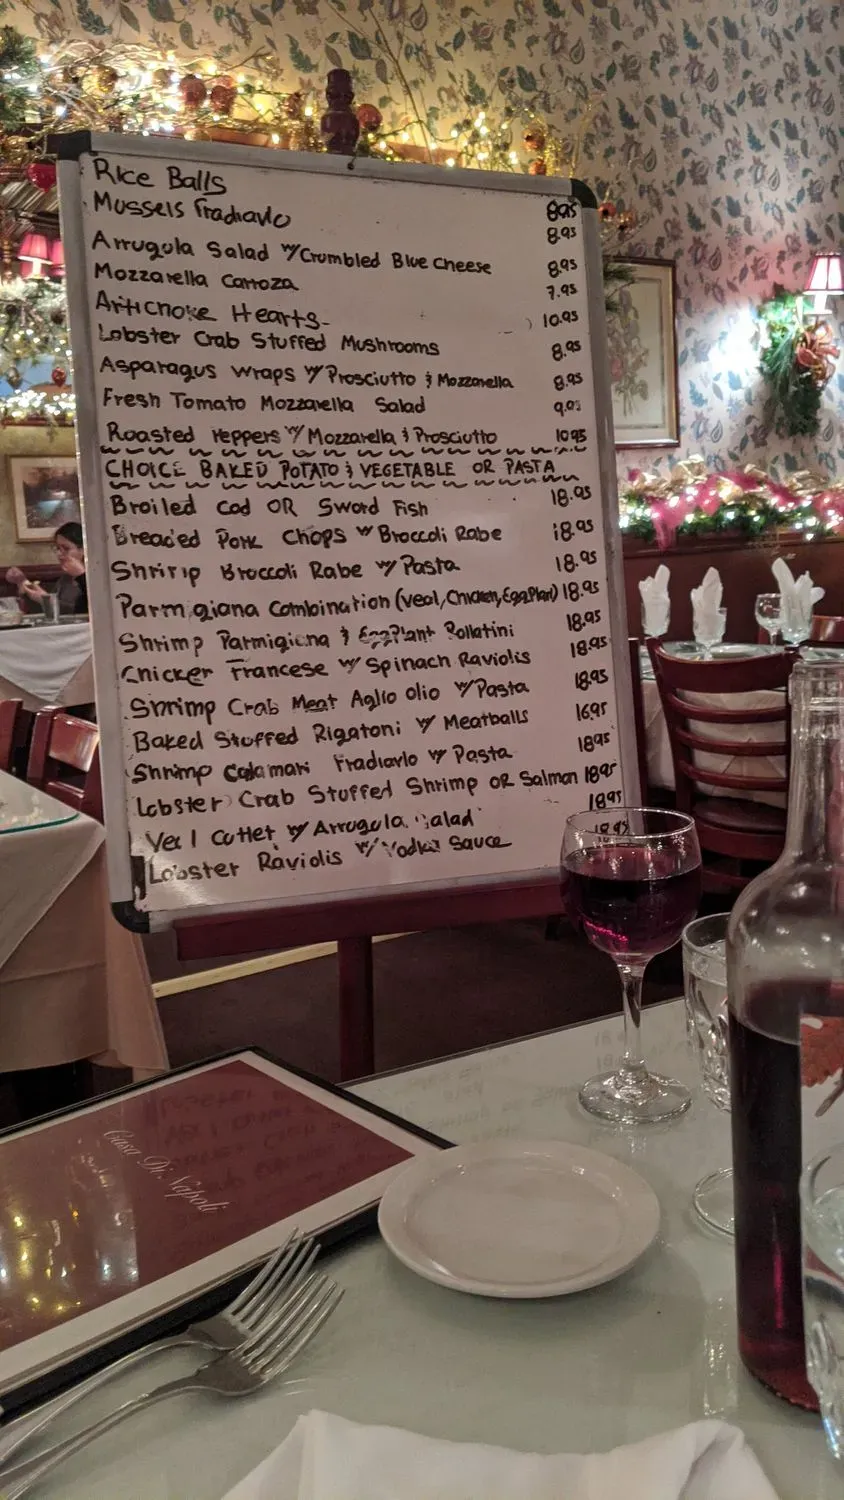 Rice Balls 8.95
Mussels Fradiavlo 8.95
Arrugula Salad w/Crumbled Blue cheese 8.95
Mozzarella Carroza 7.95
Artichoke Hearts 10.95
Lobster Crab Stuffed Mushrooms 8.95
Asparagus wraps w/ Prosciutto & Mozzarella 8.95
Fresh Tomato Mozzarella Salad
Roasted Peppers w/ Mozzarella & Prosciutto 10.95
CHOICE BAKED POTATO & VEGETABLE OR PASTA
Broiled Cod OR Sword Fish 18.95
Breaded Pork Chops w/ Broccoli Rabe 18.95
Shrimp Broccoli Rabe w/ Pasta 18.95
Parmigiana Combination (Veal, Chicken, EggPlant) 18.95
Shrimp Parmigiana & EggPlant Rollatini 18.95
Chicken Francese w/ Spinach Raviolis 18.95
Shrimp Crab Meat Aglio olio w/ Pasta 18.95
Baked Stuffed Rigatoni w/ Meatballs 16.95
Shrimp Calamari Fradiavlo w/ Pasta 18.95
Lobster Crab Stuffed Shrimp OR Salmon 18.95
Veal Cutlet w/ Arrugula Salad 18.95
Lobster Raviolis w/ Vodka Sauce 18.95
Casa Di Napoli